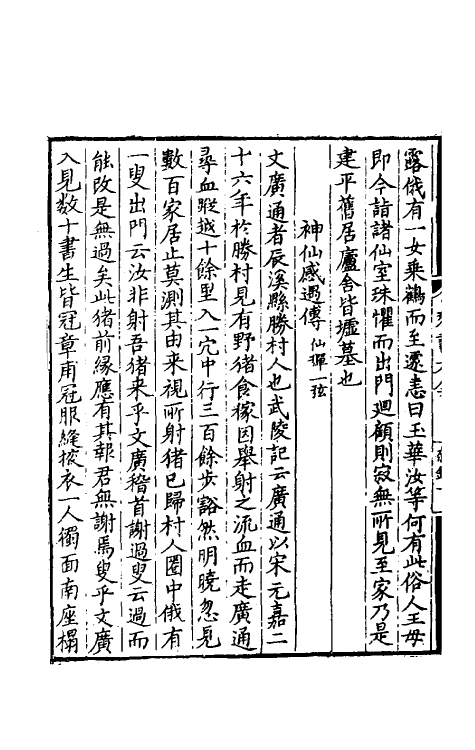 露俄有一女乘鶴而至遽恚曰玉華汝等何有此俗人王母
即令詣諸仙室珠懼而出門廻顧則寂無所見至家乃是
建平舊居廬舍皆墟墓也
神仙感遇傳仙彈一弦
文廣通者辰溪縣滕村人也武陵記云廣通以宋元嘉二
十六年於滕村見有野猪食稼因舉射之流血而走廣通
尋血蹤越十餘里入一穴中行三百餘步豁然明曉忽見
數百家居止莫測其由来視所射猪已歸村人圈中俄有
一叟出門云汝非射吾猪来乎文廣稽首謝過叟云過而
能改是無過矣此猪前緣應有其報君無謝焉叟乎文廣
入見数十書生皆冠章甫冠服縫掖衣一人獨面南座榻